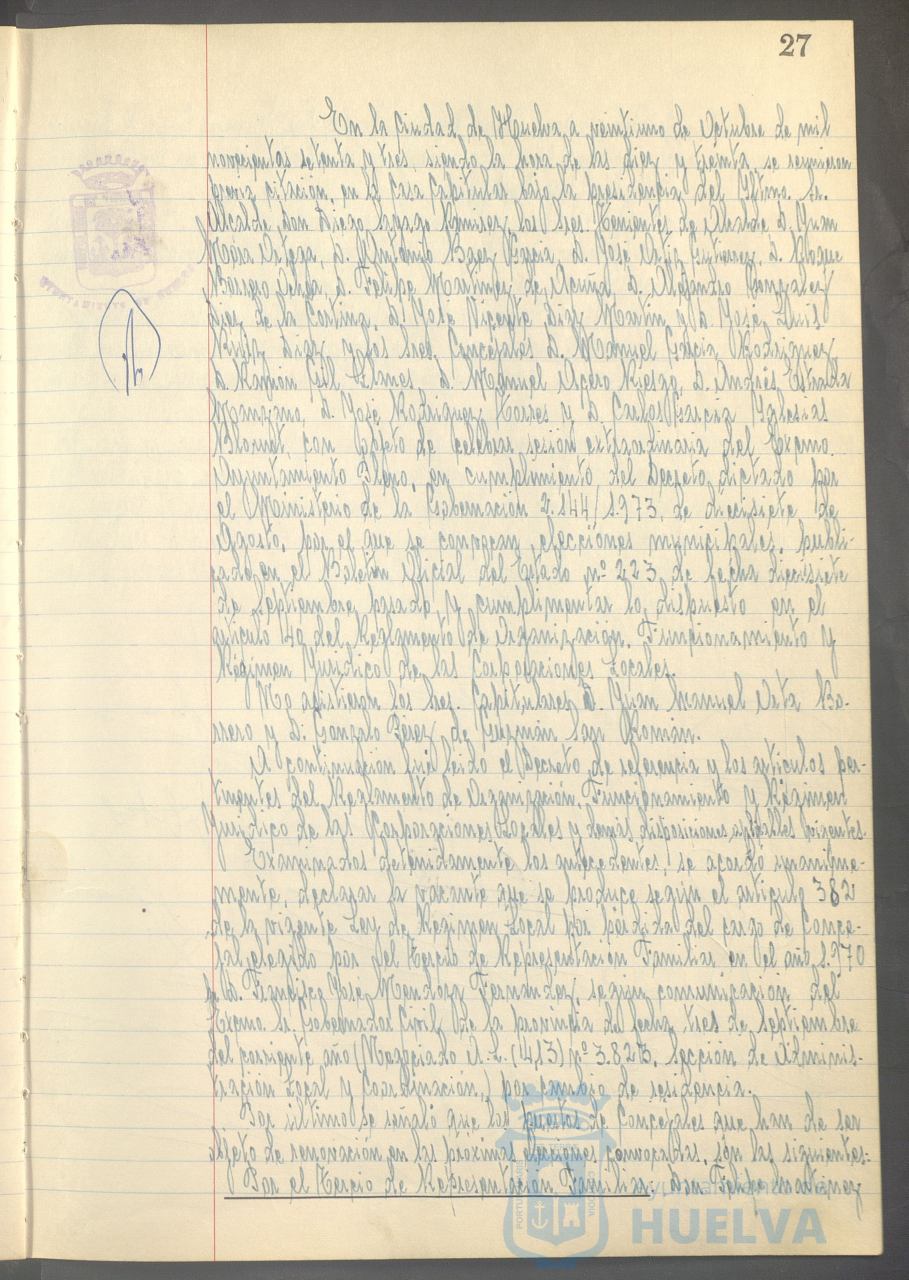 27
En la Ciudad de Huelva a veintiuno de Octubre de mil
novecientos setenta y tres, siendo la hora de las diez y treinta, se reunieron
previa citación, en la Casa Capitular bajo la presidencia del Iltmo. Sr.
Alcalde, don Diego Sayago Ramírez, los Sres. Tenientes de Alcalde D. Juan
Mora Ortega, D. Antonio Baez García, D. José Ortiz Gutierrez, D. Roque
Borrego D. Felipe Martínez de Acuña, D. Alejandro Gonzalez
Diez de la Cortina, D. José Vicente Diaz Martín y D. José Luis
Ruiz Diaz y los Sres. Concejales D. Manuel García Rodriguez
D. Ramón Gil Llanes, D. Manuel Acero Riesgo, D. Andrés Estrada
Manzano, D. José Rodriguez Torres y D. Carlos García Yglesias
con objeto de celebrar sesión extraordinaria del Excmo.
Ayuntamiento Pleno, en cumplimiento del Decreto dictado por
el Ministerio de la Gobernación 2.144/1.973, de diecisiete de
Agosto, por el que se convocan elecciones municipales, publi-
cado en el Boletín Oficial del Estado nº 223 de fecha diecisiete
de Septiembre pasado, y cumplimentar lo dispuesto en el
artículo 40 del Reglamento de Organización, Funcionamiento y
Régimen Juridico de las Corporaciones Locales.
No asistieron los Sres. Capitulares D. Juan Manuel Orta Bo-
rrero y D. Gonzalo Pérez de Guzmán San Román.
A continuación fué leido el Decreto de referencia y los artículos per-
tinentes del Reglamento de Organización, Funcionamiento y Régimen
Jurídico de las Corporaciones Locales y demás disposiciones vigentes.
Examinados detenidamente los antecedentes, se acordó unanime-
mente, declarar la vacante que se produce según el artículo 382
de la vigente Ley de Régimen Local por pérdida del cargo de Conce-
jal elegido por el Tercio de Representación Familiar en el año 1.970
de D. Francisco José Mendoza Fernandez, según comunicación del
Excmo. Sr. Gobernador Civil de la provincia de fecha tres de Septiembre
del corriente año (Negociado A.L. (4,3) nº 3.823, Sección de Adminis-
tración Local y Coordinación,) por cambio de residencia.
Por último se señaló que los puestos de Concejales que han de ser
objeto de renovación en las próximas elecciones convocadas, son las siguientes:
Por el Tercio de Representación Familiar: Don Felipe Martinez
HUELVA